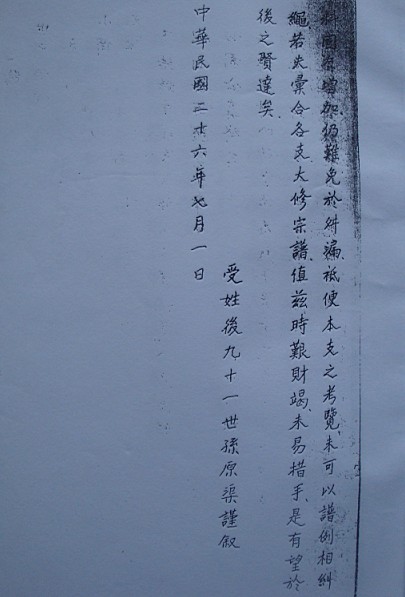 增加仍難免於舛漏祗便本支之考覽未可以譜例相糾
繩若夫彙合各支大修宗譜值茲時艱財竭未易措手是有望於
後之賢達矣
受姓後九十一世孫原渠謹叙
中華民國二十六年七月一日